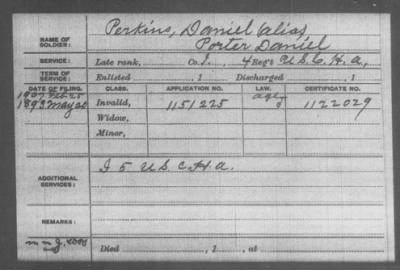 NAME OF SOLDIER: Perkins, Daniel (alias
Porter Daniel
SERVICE: Late rank, Co. I, 4 Reg't U.S.C.H.A.,
TERM OF SERVICE: Enlisted , 1 Discharged , 1
DATE OF FILING. CLASS. APPLICATION NO. LAW. CERTIFICATE NO.
1907 Feb 25 age
1893 May Invalid, 1151225 1122029
Widow,
Minor,
ADDITIONAL SERVICES: I 5 U.S.C.H.A.
REMARKS:
Died , 1 , at